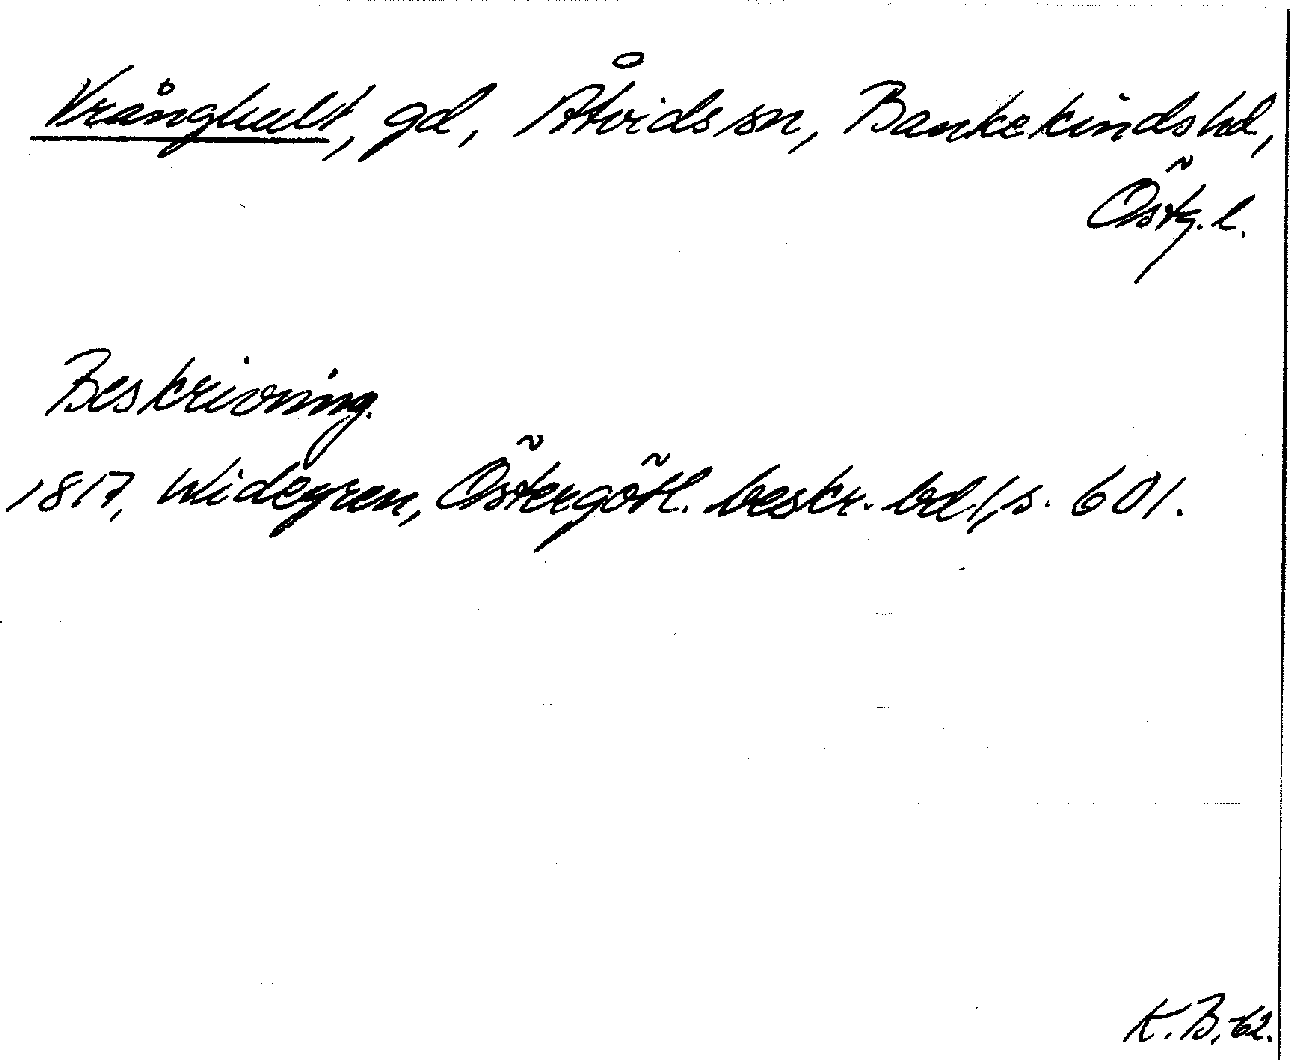 Vrånghult, gd, Åtvids sn, Bankekinds hd,
Östg. l.
Beskrivning.
1817, Widegren, Östergötl. beskr. bd 1, s. 601.
K. B. -62.